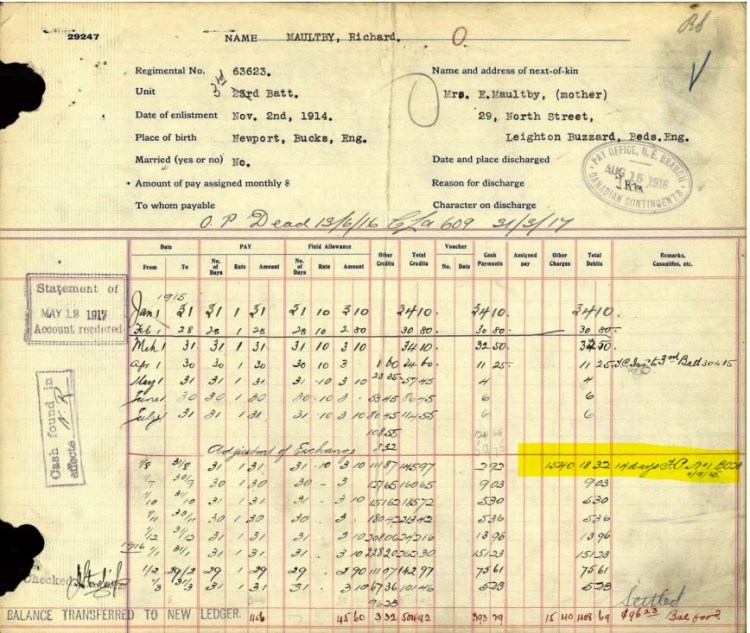 29247
NAME MAULTBY, Richard.
Regimental No. 63623.
Name and address of next-of-kin
Unit 3rd 23rd Batt.
Mrs. E.Maultby, (mother)
Date of enlistment Nov. 2nd, 1914.
29, North Street,
Place of birth Newport, Bucks, Eng.
Leighton Buzzard, Beds.Eng.
Married (yes or no) No.
Date and place discharged
Amount of pay assigned monthly $
Reason for discharge
To whom payable
Character on discharge
PAY OFFICE, N.E. BRANCH
AUG 15 1916
CANADIAN CONTINGENTS
O. P Dead 13/6/16 609 31/3/17
Date PAY Field Allowance Other Credits Total Credits Voucher Cash Payments Assigned pay Other Charges Total Debits Remarks, Casualties, etc.
From To No. of Days Rate Amount No. of Days Rate Amount No. Date
Statement of
MAY 18 1917
Account rendered
1915
Jan 1 31 31 1 31 31 10 3 10 34 10 34 10 34 10
Feb 1 28 28 1 28 28 10 2 80 30 80 30 80 30 80
Mch 1 31 31 1 31 31 10 3 10 34 10 32 50
Apr 1 30 30 1 30 30 10 3 11 25 11 25 3rd Batt 30 4 15
May 1 31 31 1 31 31 10 3 10 57 45 4 4
June 1 30 30 1 30 30 10 3 6 6
July 1 31 31 1 31 31 10 3 10 6 6
Cash found in
effects
108 55
Adjustment of Exchange 3 32
1/8 31/8 31 1 31 31 10 3 10 111 87 145 97 2 92 15 40 18 32 14 days F.P. No 1
30/9 30 1 30 30 3 127 65 160 65 9 03 9 03
31/10 31 1 31 31 3 10 151 62 185 72 5 30 5 30
30/11 30 1 30 30 3 180 42 213 42 5 36 5 36
31/12 31 1 31 31 3 10 208 06 242 16 13 96 13 96
1916 1/1 31/1 31 1 31 31 3 10 228 20 262 30 151 23 151 23
1/2 29/2 29 1 29 29 2 90 111 07 142 97 75 61 75 61
31/3 31 1 31 31 3 10 67 36 101 46 5 23 5 23
Checked
96 23
Settled
BALANCE TRANSFERRED TO NEW LEDGER. 456 45 60 3 32 504 92 393 29 15 40 408 69 $96 23 Bal for'd